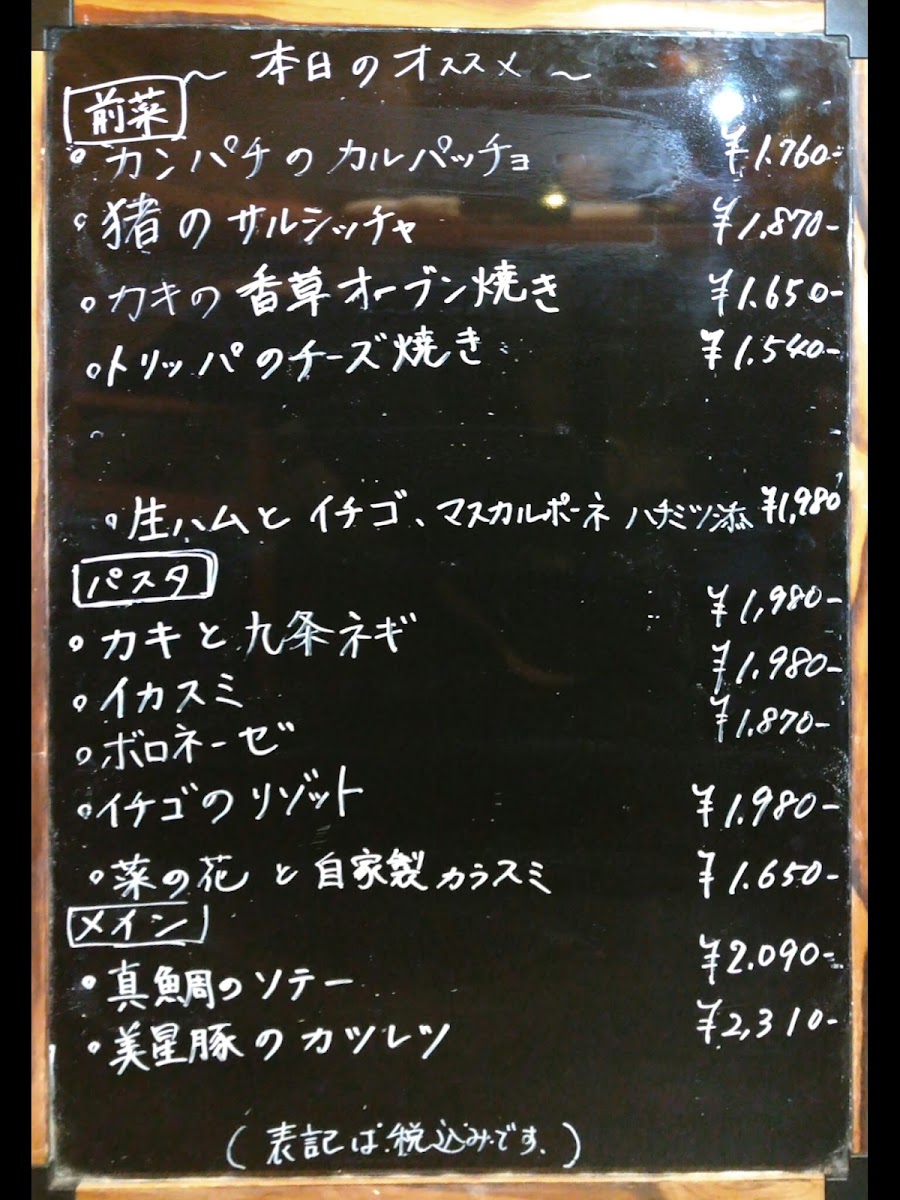 ～ 本日のオススメ ～
前菜
• カンパチのカルパッチョ ¥1.760-
• 猪のサルシッチャ ¥1.870-
• カキの香草オーブン焼き ¥1.650-
• トリッパのチーズ焼き ¥1.540-
• 生ハムとイチゴ、マスカルポーネ ハチミツ添 ¥1,980
パスタ
• カキと九条ネギ ¥1,980-
• イカスミ ¥1.980-
• ボロネーゼ ¥1.870-
• イチゴのリゾット ¥1.980-
• 菜の花と自家製カラスミ ¥1.650-
メイン
• 真鯛のソテー ¥2.090-
• 美星豚のカツレツ ¥2,310-
（表記は税込みです.）